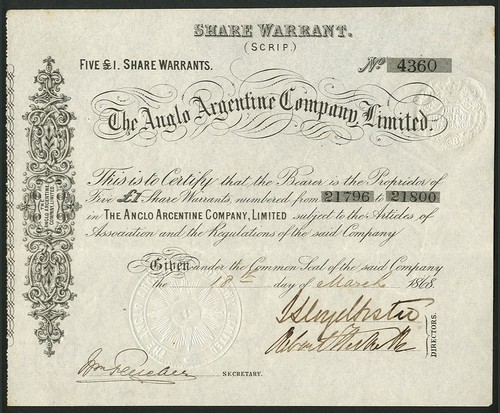 SHARE WARRANT.
(SCRIP.)
FIVE £1. SHARE WARRANTS.
No 4360
The Anglo Argentine Company, Limited.
This is to Certify that the Bearer is the Proprietor of
Five £1 Share Warrants, numbered from 21796 to 21800
in THE ANGLO ARGENTINE COMPANY, LIMITED subject to the Articles of
Association and the Regulations of the said Company
Given under the Common Seal of the said Company
the 18th day of March 1868
DIRECTORS.
SECRETARY.
THE ANGLO ARGENTINE
COMPANY, LIMITED